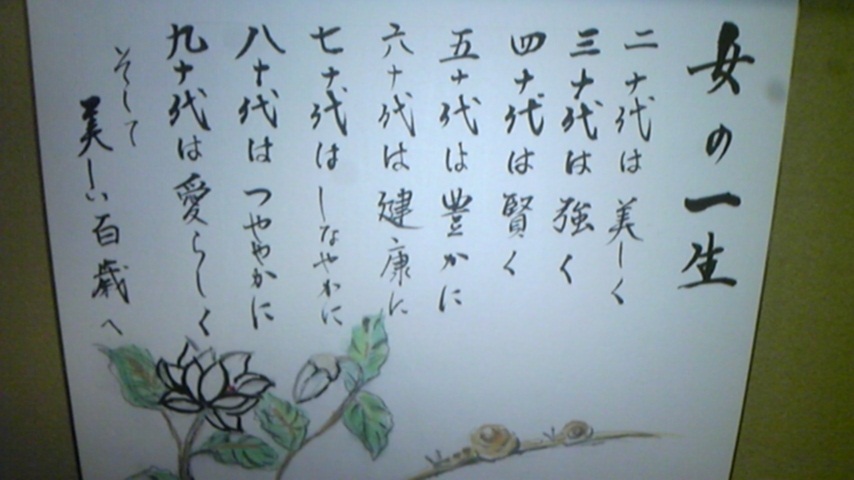 女の一生
二十代は美しく
三十代は強く
四十代は賢く
五十代は豊かに
六十代は健康に
七十代はしなやかに
八十代はつややかに
九十代は愛らしく
そして
美しい百歳へ